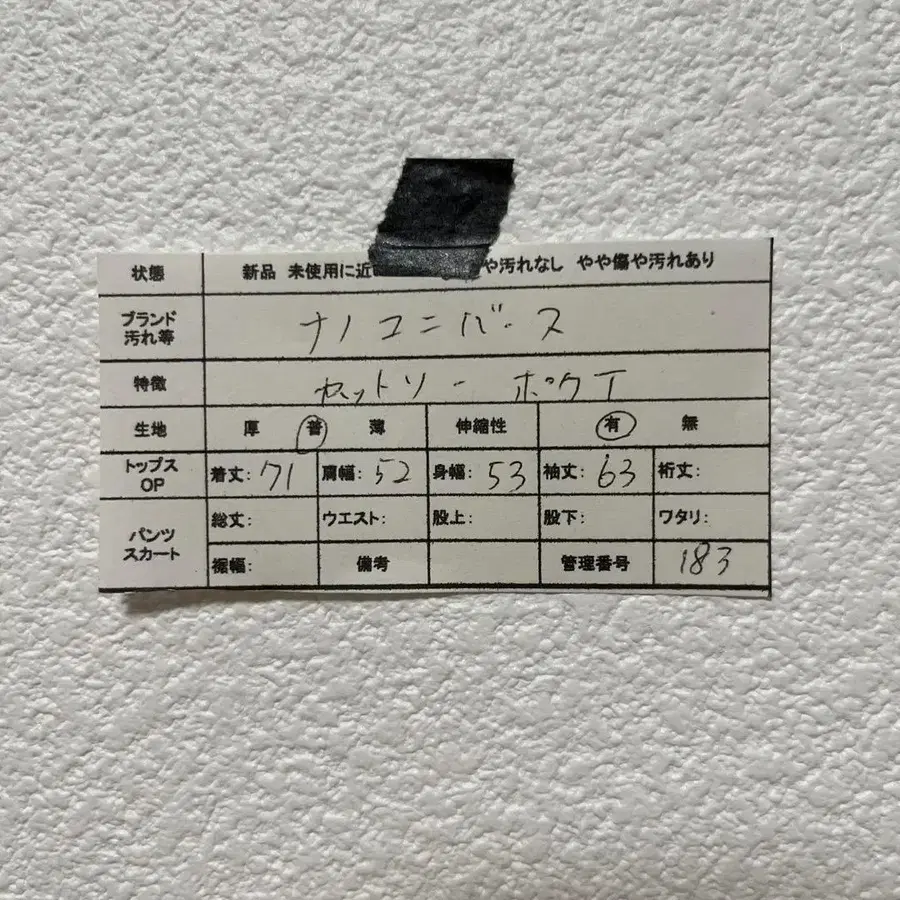 状態 新品 未使用に近 や汚れなし やや傷や汚れあり
ブランド 汚れ等 ナノユニバース
特徴 カットソー ポケT
生地 厚 普 薄 伸縮性 有 無
トップス OP 着丈: 71 肩幅: 52 身幅: 53 袖丈: 63 裄丈:
パンツ スカート 総丈: ウエスト: 股上: 股下: ワタリ:
裾幅: 備考 管理番号 183